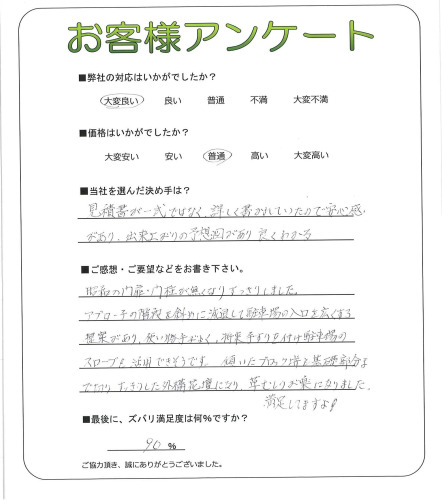 お客様アンケート
■弊社の対応はいかがでしたか?
大変良い 良い 普通 不満 大変不満
■価格はいかがでしたか?
大変安い 安い 普通 高い 大変高い
■当社を選んだ決め手は?
見積書が一式ではなく、詳しく書かれていたので安心感
があり、出来上がりの予想図があり良くわかる
■ご感想・ご要望などをお書き下さい。
昭和の門扉・門柱が無くなりすっきりしました。
アプローチの階段を斜めに減退して駐車場の入口を広くする
提案があり、使い勝手がよく、将来手すりを付け駐車場の
スロープも活用できそうです。傾いたブロック塀も基礎部分まで
すっきりした外構花壇になり、草むしりが楽になりました。
満足してますよ!
■最後に、ズバリ満足度は何%ですか?
90 %
ご協力頂き、誠にありがとうございました。